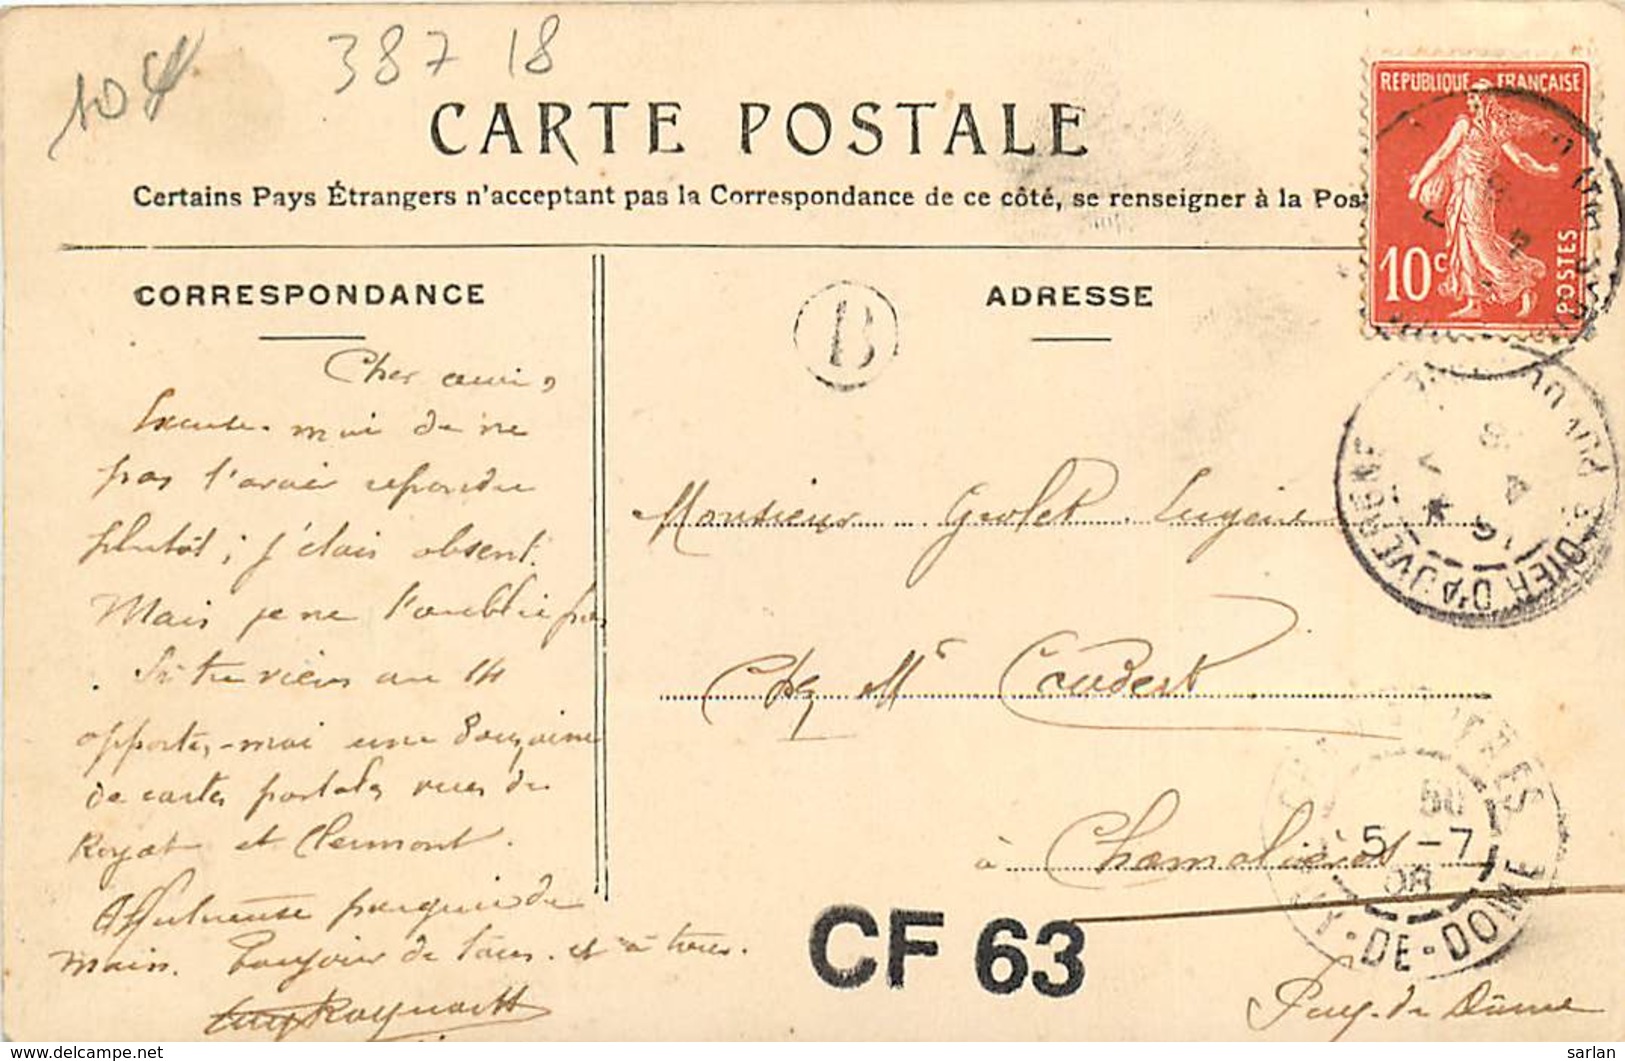 10
387 18
CARTE POSTALE
Certains Pays Étrangers n'acceptant pas la Correspondance de ce côté, se renseigner à la Pos
REPUBLIQUE FRANÇAISE
10c
POSTES
CORRESPONDANCE
ADRESSE
B
Cher ami,
Excuse-moi de ne
pas t'avoir repondu
plutôt; j'etais absent.
Mais je ne t'oublie pas
. Si tu viens au 14
apporte,-moi une douzaine
de cartes postales vues de
Royat et Clermont.
Affectueuse poignée de
main. Bonjour de tous et à tous.
Monsieur Grolet Eugène
Chez Mr Coudert
à Chamalières
Puy-de Dôme
PUY-DE-DOME
DIER D'AUVERGNE
PUY-DE-DOME
5-7
08
CF 63
Sarlan